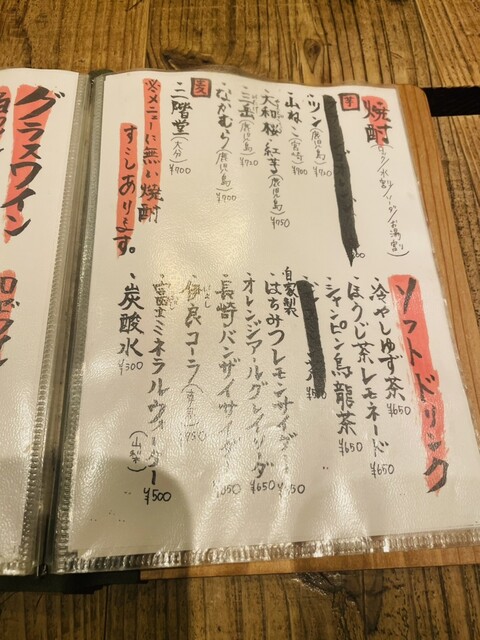 焼酎
芋
・ツン(鹿児島)¥720
・山ねこ(宮崎)¥700
・大和桜・紅芋(鹿児島)¥750
・三岳(鹿児島)¥720
・なかむら(鹿児島)¥700
麦
・二階堂(大分)¥700
※メニューに無い焼酎
すこしあります。
ソフトドリンク
・冷やしゆず茶 ¥650
・ほうじ茶レモネード ¥650
・ジャンピン烏龍茶 ¥650
自家製
・はちみつレモンサイダー
・オレンジアールグレイソーダ ¥650
・長崎バンザイサイダー
・伊良コーラ
・富士ミネラルウォーター(山梨)¥500
・炭酸水 ¥300
グラスワイン